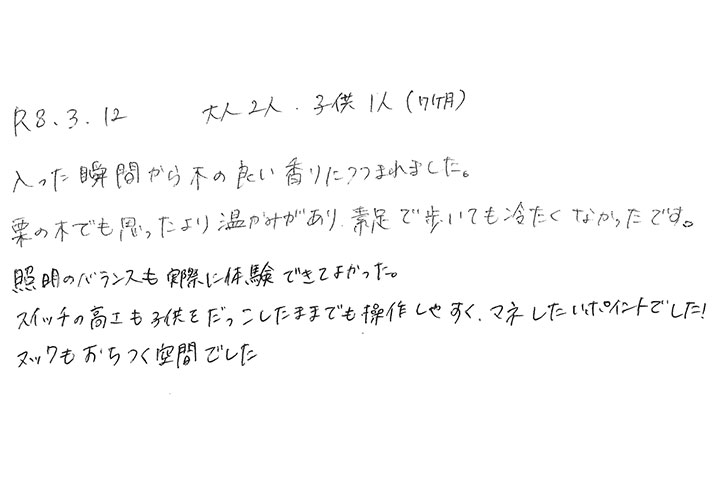 R8.3.12 大人2人・子供1人(7ヶ月)
入った瞬間から木の良い香りにつつまれました。
栗の木でも思ったより温かみがあり、素足で歩いても冷たくなかったです。
照明のバランスも実際に体験できてよかった。
スイッチの高さも子供をだっこしたままでも操作しやすく、マネしたいポイントでした!
ヌックもおちつく空間でした